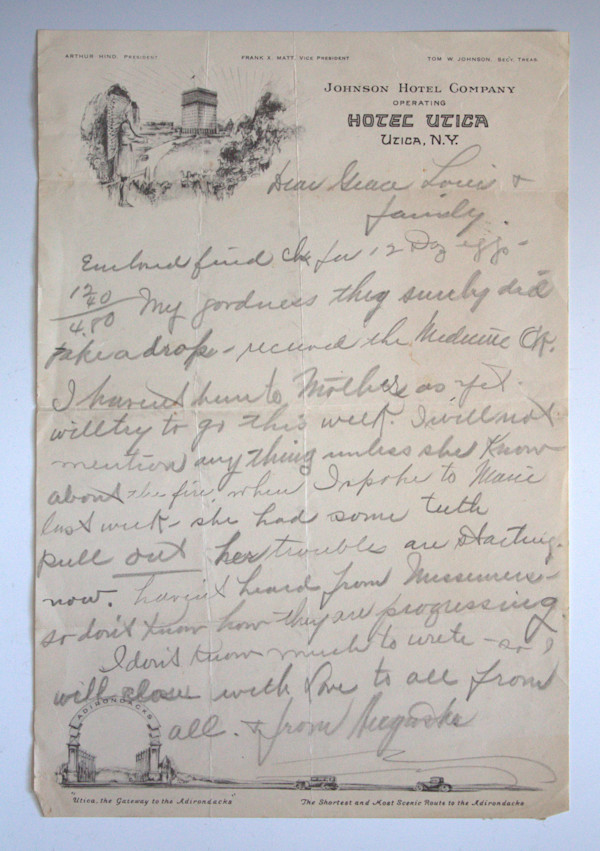 ARTHUR HIND, PRESIDENT FRANK X. MATT, VICE PRESIDENT TOM W. JOHNSON, SEC'Y. TREAS.
JOHNSON HOTEL COMPANY
OPERATING
HOTEL UTICA
UTICA, N.Y.
Dear Grace Louis &
family.
Enclosed find Ck for 12 Dz eggs -
12
40
4.80
My goodness they surely did
take a drop - received the Medicine OK.
I haven't been to Mothers as yet.
will try to go this week. I will not
mention any thing unless she know
about the fire, when I spoke to Marie
last week - she had some teeth
pull out her troubles are starting.
now. haven't heard from
so don't know how they are progressing.
I don't know much to write - so I
will close with Love to all from
all. & from
ADIRONDACKS
"Utica, the Gateway to the Adirondacks" The Shortest and Most Scenic Route to the Adirondacks